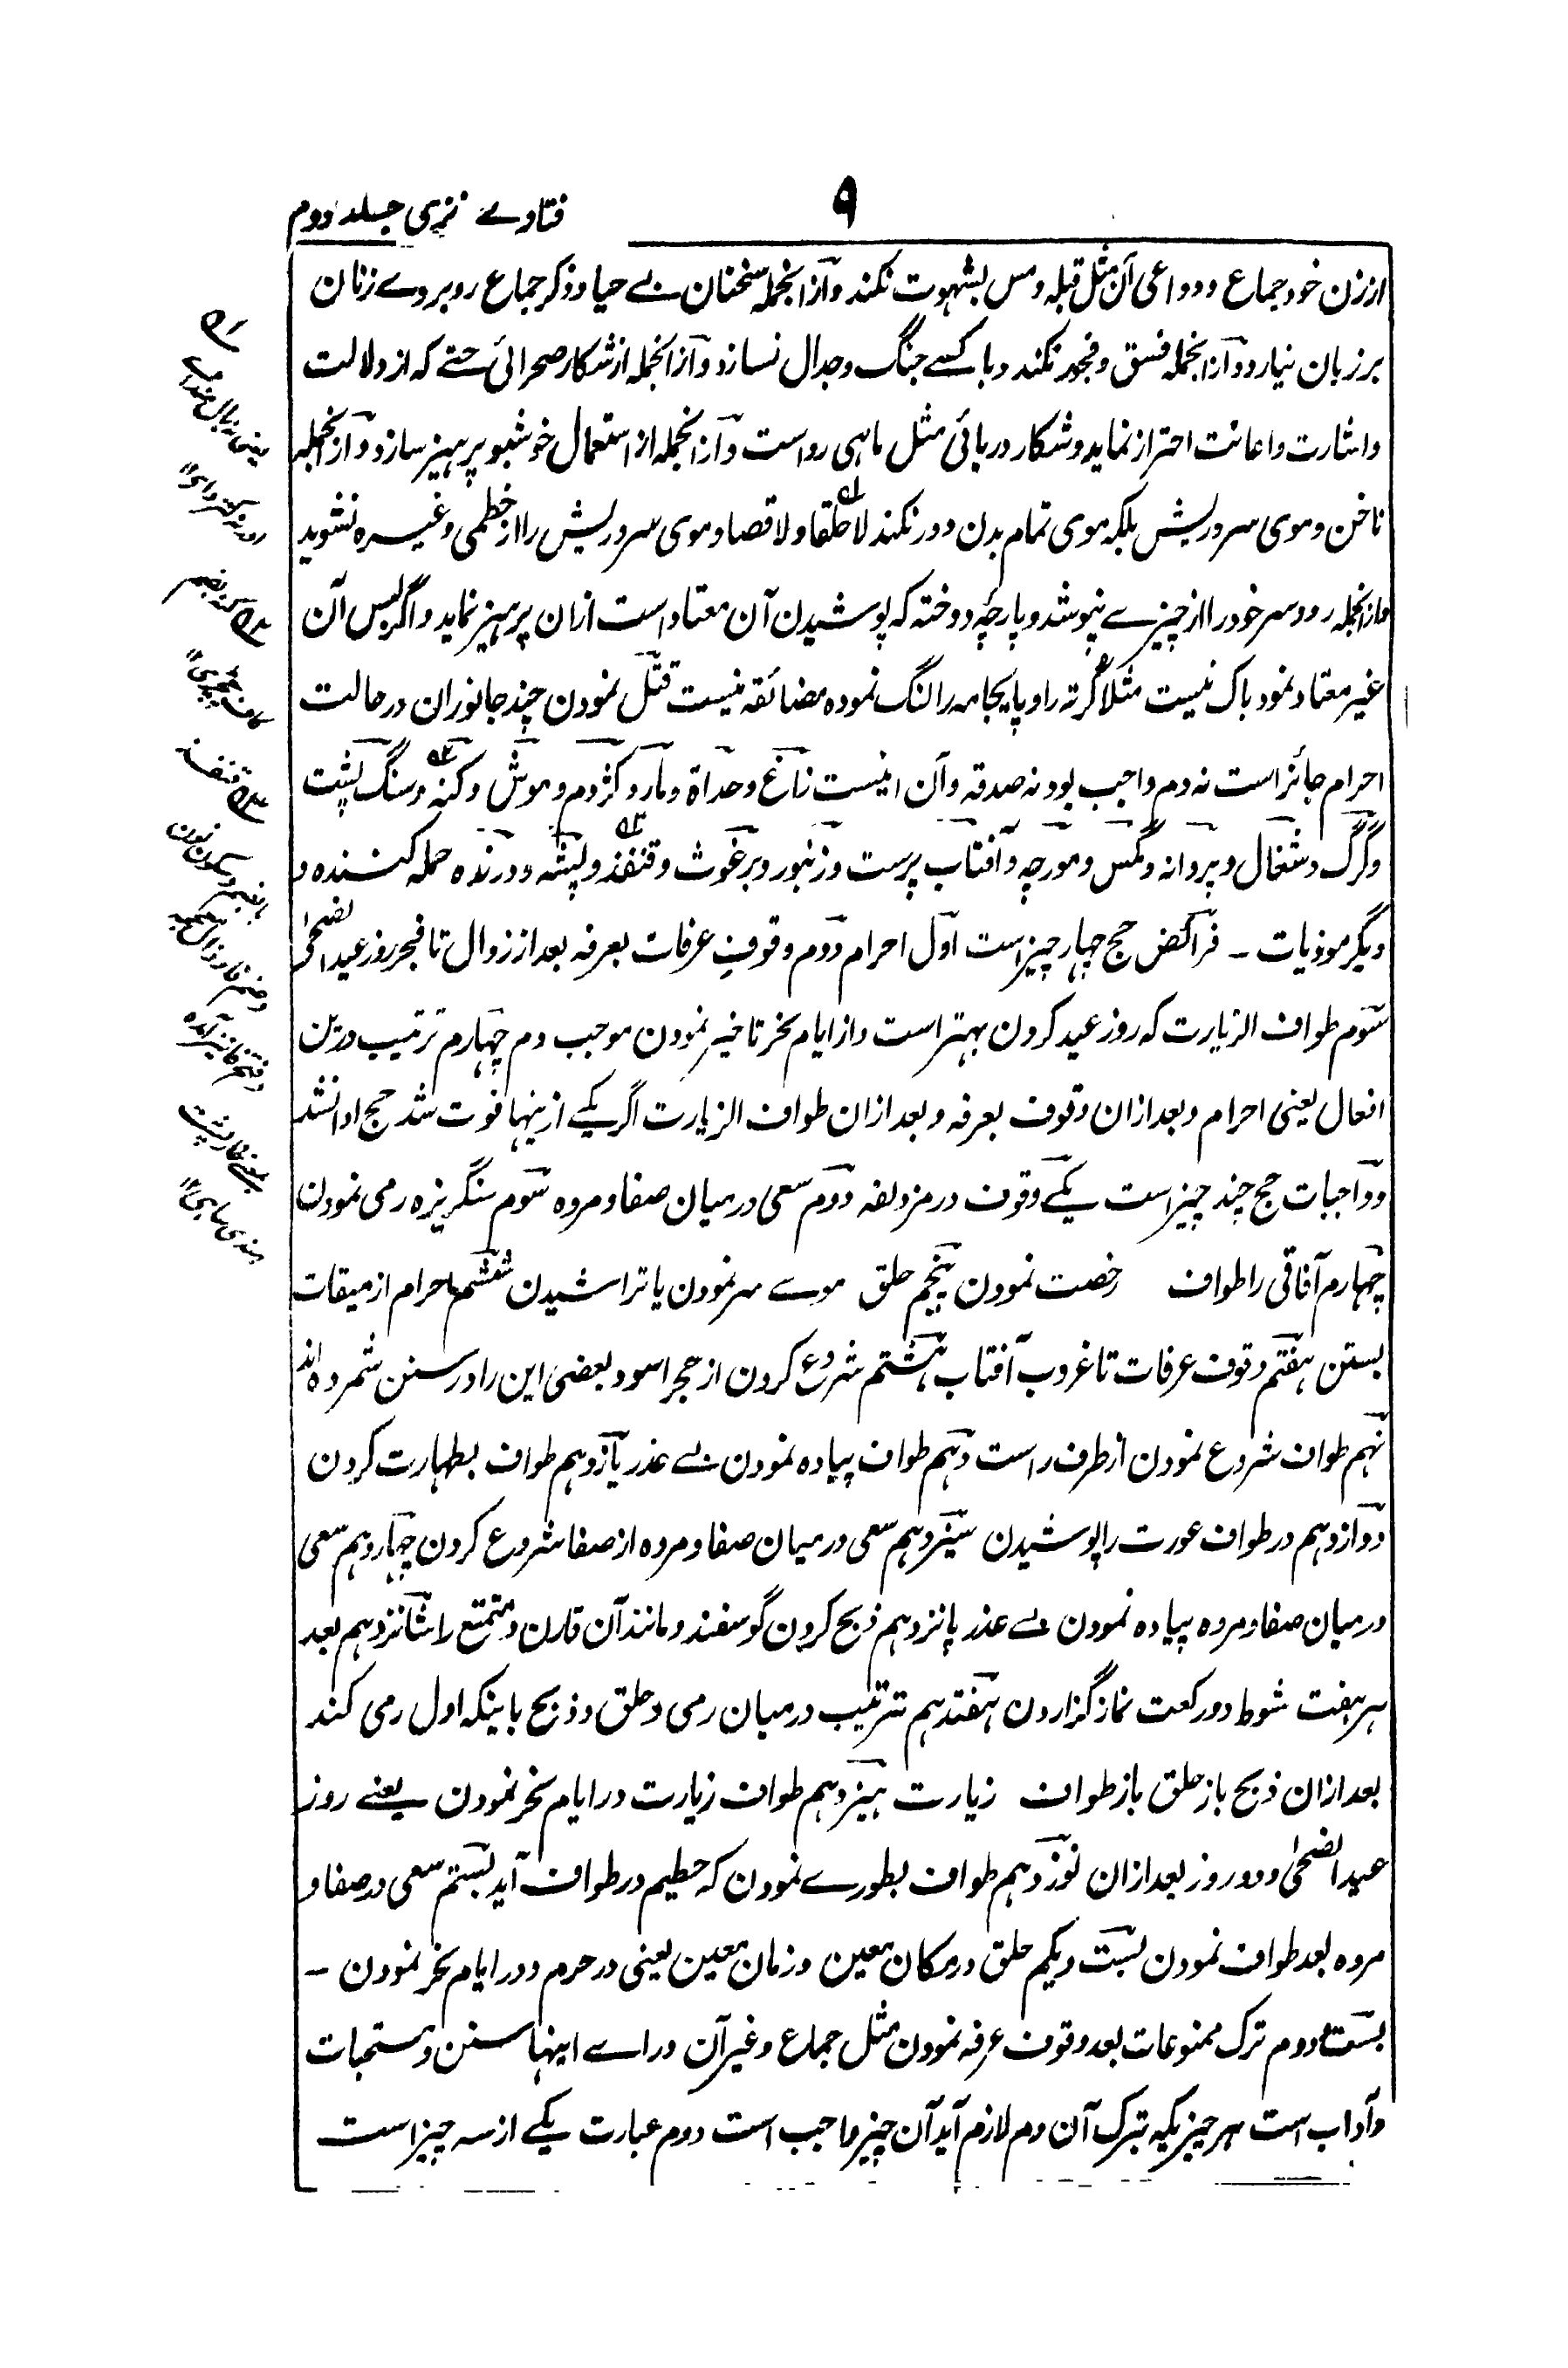 ۹
فتاوے عزیزی جلد دوم
از زن خود جماع و دواعی آن مثل قبله و مس بشہوت نکند و از انجملہ سخنان بے حیا و ذکر جماع روبروے زنان
بر زبان نیارد و از انجملہ فسق و فجور نکند و با کسے جنگ و جدال نسازد و از انجملہ از شکار صحرائی حتے کہ از دلالت
و اشارت و اعانت احتراز نماید و شکار دریائی مثل ماہی رواست و از انجملہ از استعمال خوشبو پرہیز سازد و از انجملہ
ناخن و موی سر و ریش بلکہ موی تمام بدن دور نکند لا حلقا و لا قصا و موی سر و ریش را از خطمی و غیرہ نشوید
و از انجملہ رو و سر خود را از چیزے نپوشد و پارچۂ دوختہ کہ پوشیدن آن معتاد است ازان پرہیز نماید و اگر لبس آن
غیر معتاد نمود باک نیست مثلا کرتہ را و پایجامہ را لنگ نمودہ مضائقہ نیست قتل نمودن چند جانوران در حالت
احرام جائز است نہ دم واجب بود نہ صدقہ و آن اینست زاغ و حداۃ و مار و کژدم و موش و کنہ و سنگ پشت
و گرگ و شغال و پروانہ و مگس و مورچہ و آفتاب پرست و زنبور و برغوث و قنفذ و پشہ و درندہ حملہ کنندہ و
دیگر موذیات ۔ فرائض حج چہار چیز است اول احرام دوم وقوف عرفات بعرفہ بعد از زوال تا فجر روز عید الضحیٰ
سوم طواف الزیارت کہ روز عید کردن بہتر است و از ایام نحر تاخیر نمودن موجب دم چہارم ترتیب درین
افعال یعنی احرام و بعد ازان وقوف بعرفہ و بعد ازان طواف الزیارت اگر یکے ازینہا فوت شد حج ادا نشد
و واجبات حج چند چیز است یکے وقوف در مزدلفہ دوم سعی درمیان صفا و مروہ سوم سنگریزہ رمی نمودن
چہارم آفاقی را طواف رخصت نمودن پنجم حلق موے سر نمودن یا تراشیدن ششم احرام از میقات
بستن ہفتم وقوف عرفات تا غروب آفتاب ہشتم شروع کردن از حجر اسود و بعضی این را در سنن شمردہ اند
نہم طواف شروع نمودن از طرف راست دہم طواف پیادہ نمودن بے عذر یازدہم طواف بطہارت کردن
دوازدہم در طواف عورت را پوشیدن سیزدہم سعی درمیان صفا و مروہ از صفا شروع کردن چہاردہم سعی
درمیان صفا و مروہ پیادہ نمودن بے عذر پانزدہم ذبح کردن گوسفند و مانند آن قارن و متمتع را شانزدہم بعد
ہر ہفت شوط دو رکعت نماز گزاردن ہفتدہم ترتیب درمیان رمی و حلق و ذبح باینکہ اول رمی کند
بعد ازان ذبح باز حلق باز طواف زیارت ہیزدہم طواف زیارت در ایام نحر نمودن یعنے روز
عید الضحیٰ و دو روز بعد ازان نوزدہم طواف بطورے نمودن کہ حطیم در طواف آید بستم سعی در صفا و
مروہ بعد طواف نمودن بست و یکم حلق در مکان معین و زمان معین یعنی در حرم و در ایام نحر نمودن ۔
بست و دوم ترک ممنوعات بعد وقوف عرفہ نمودن مثل جماع و غیر آن وراے اینہا سنن و مستحبات
و آداب است ہر چیزیکہ بترک آن دم لازم آید آن چیز واجب است دوم عبارت یکے از سہ چیز است